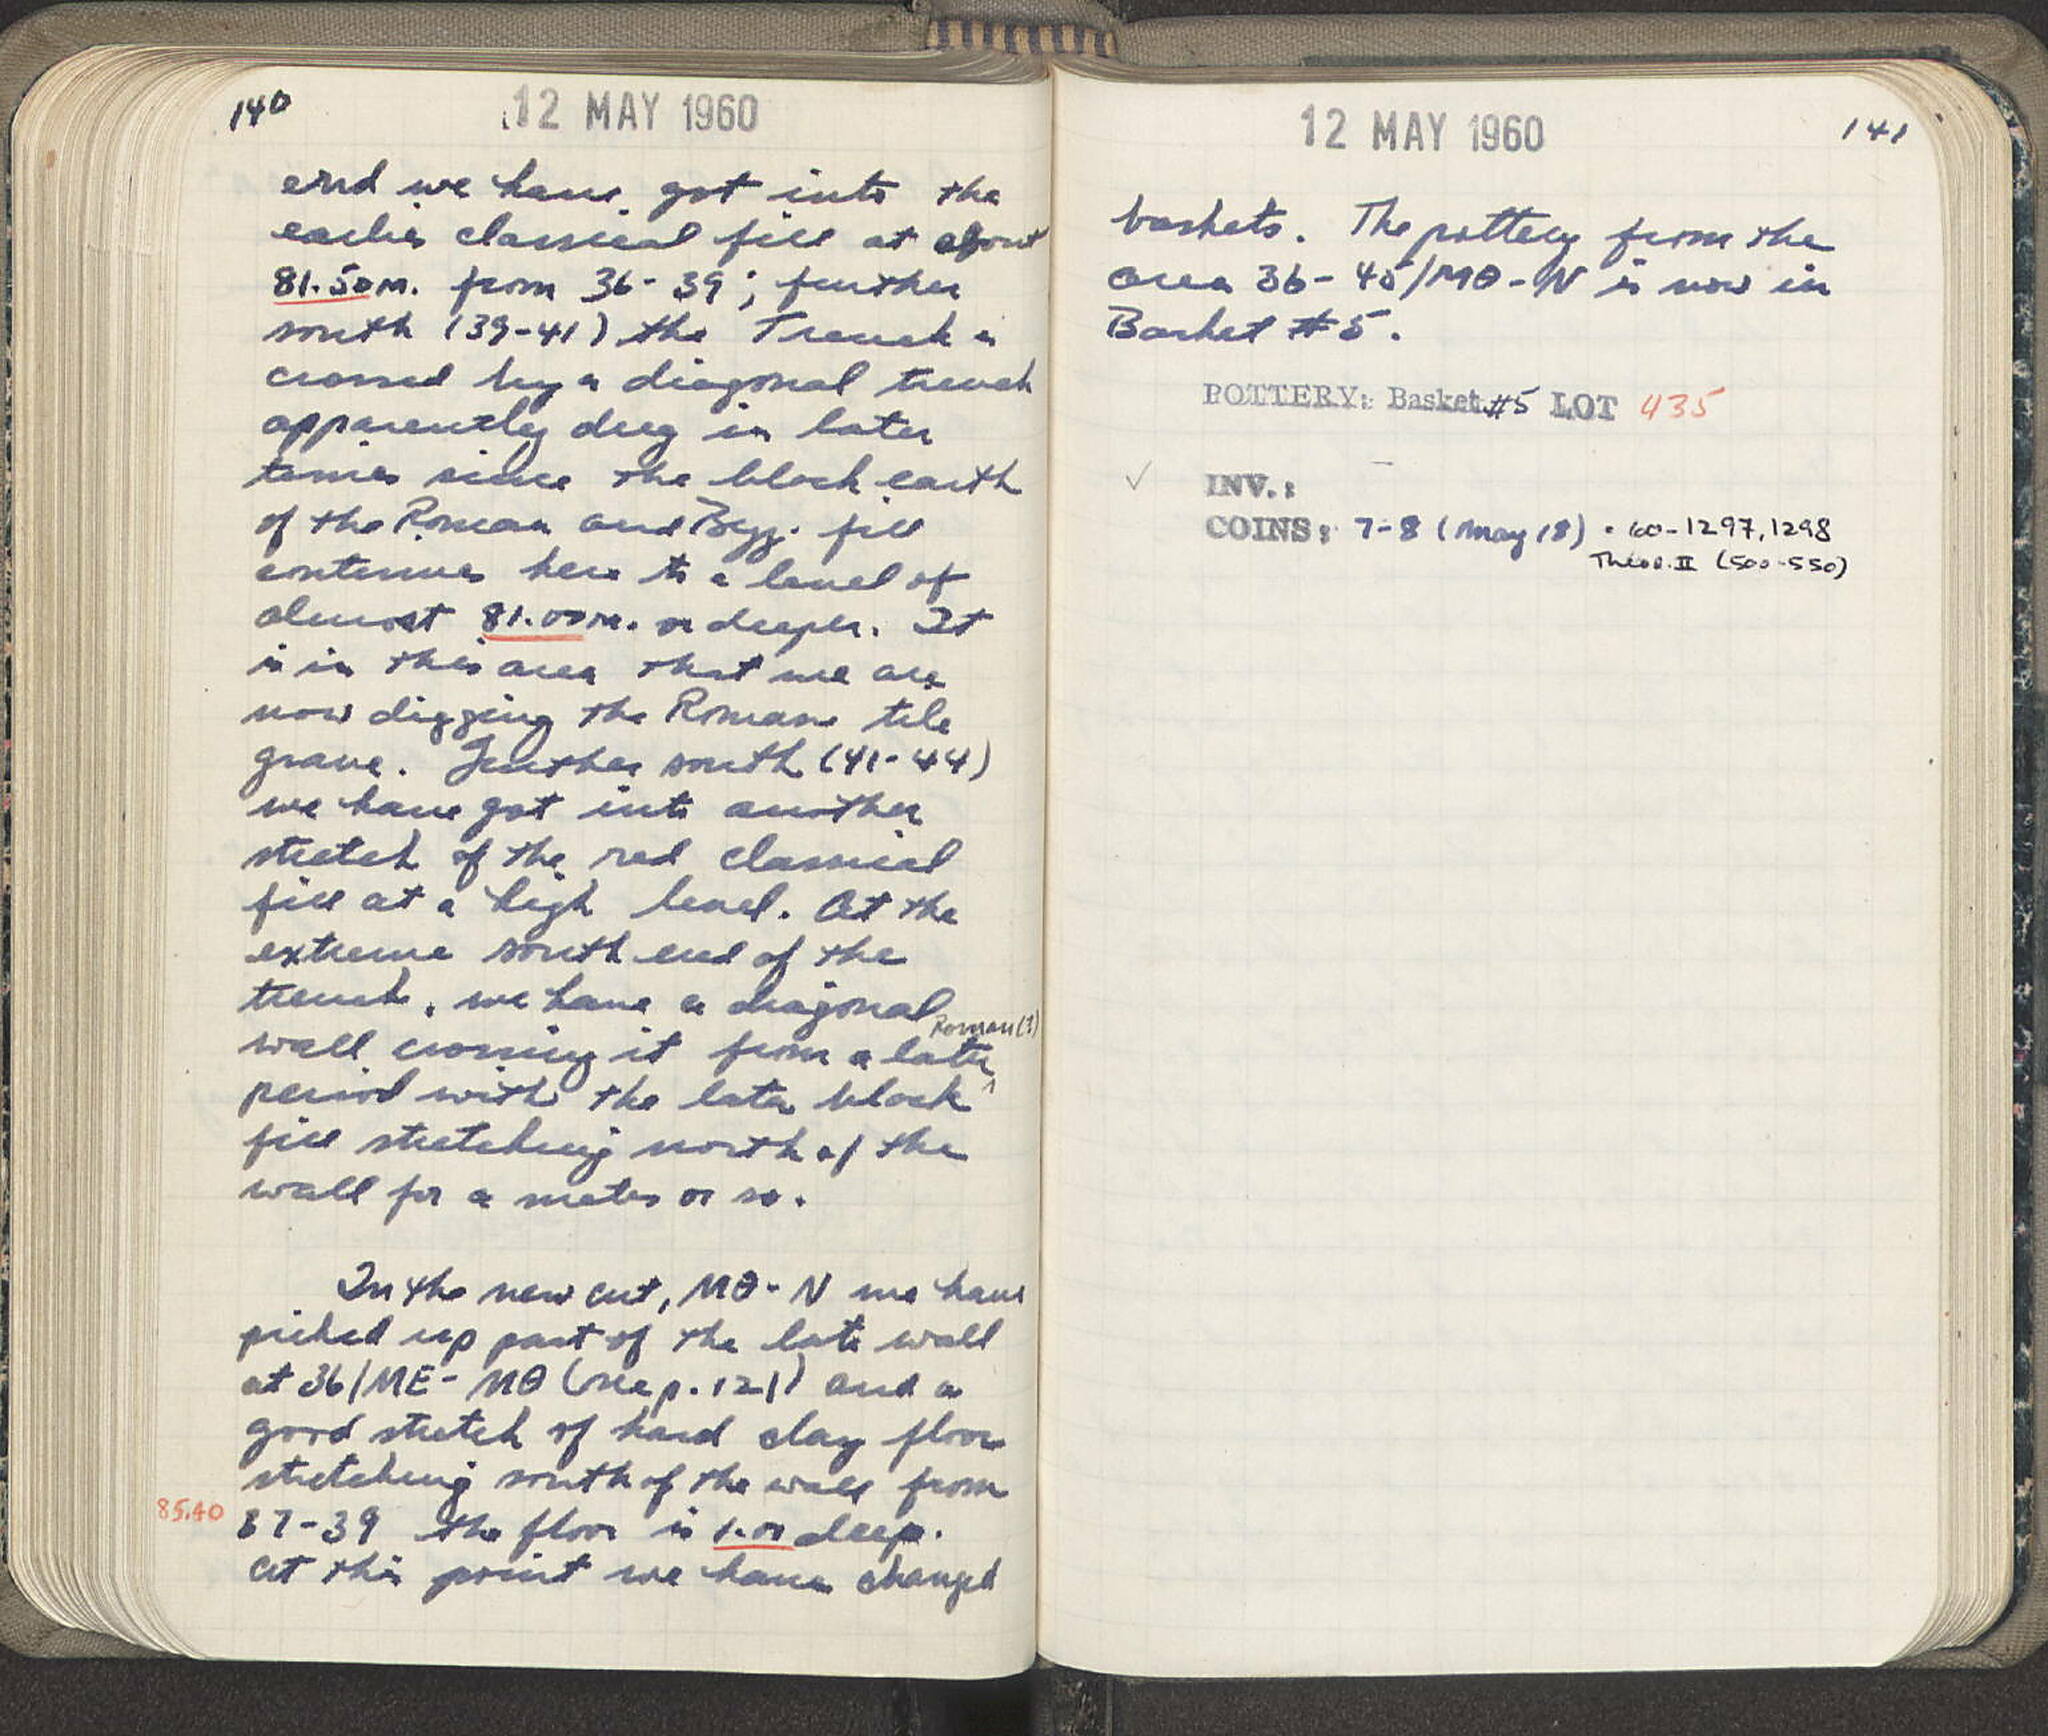 140
12 MAY 1960
end we have got into the
earlier classical fill at about
81.50 M. from 36-39; further
south (39-41) the Trench is
crossed by a diagonal trench
apparently dug in later
times since the black earth
of the Roman and Byz. fill
continues here to a level of
almost 81.00 M. or deeper. It
is in this area that we are
now digging the Roman tile
grave. Further south (41-44)
we have got into another
stretch of the red classical
fill at a high level. At the
extreme south end of the
trench, we have a diagonal
Roman (?)
wall crossing it from a later
period with the later black
fill stretching north of the
wall for a meter or so.
In the new cut, MΘ-N we have
picked up part of the late wall
at 36/ME-MΘ (see p. 121) and a
good stretch of hard clay floor
stretching south of the wall from
85.40
37-39 the floor is 1.01 deep.
At this point we have changed
12 MAY 1960
141
baskets. The pottery from the
area 36-45/MΘ-N is now in
Basket #5.
POTTERY: Basket #5 LOT 435
✓ INV.:
COINS: 7-8 (May 18) . 60-1297, 1298
Theod. II (500-550)